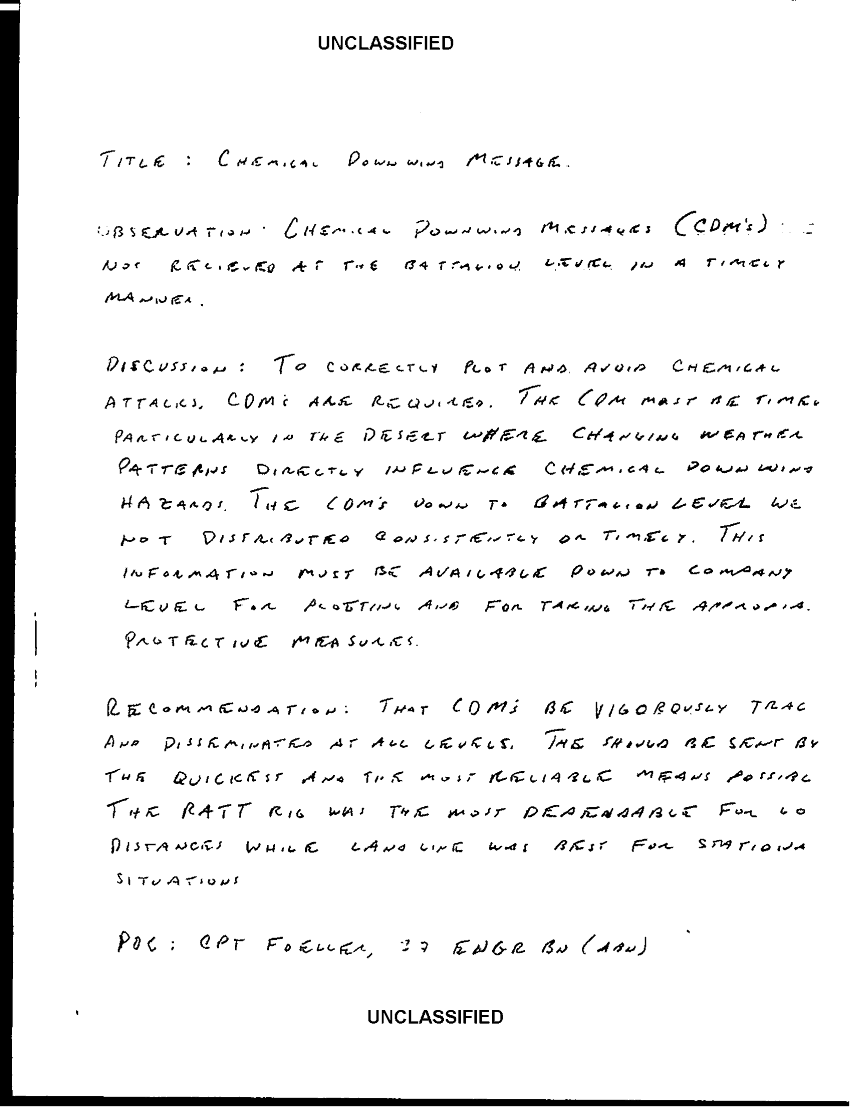 UNCLASSIFIED
TITLE : CHEMICAL DOWNWIND MESSAGE.
OBSERVATION: CHEMICAL DOWNWIND MESSAGES (CDM'S)
NOT RECIEVED AT THE BATTALION LEVEL IN A TIMELY
MANNER.
DISCUSSION: TO CORRECTLY PLOT AND AVOID CHEMICAL
ATTACKS, CDM'S ARE REQUIRED. THE CDM MUST BE TIMEL
PARTICULARLY IN THE DESERT WHERE CHANGING WEATHER
PATTERNS DIRECTLY INFLUENCE CHEMICAL DOWNWIND
HAZARDS. THE CDM'S DOWN TO BATTALION LEVEL WE
NOT DISTRIBUTED CONSISTENTLY OR TIMELY. THIS
INFORMATION MUST BE AVAILABLE DOWN TO COMPANY
LEVEL FOR PLOTTING AND FOR TAKING THE APPROPIA
PROTECTIVE MEASURES.
RECOMMENDATION: THAT CDM'S BE VIGOROUSLY TRAC
AND DISSEMINATED AT ALL LEVELS. THE SHOULD BE SENT BY
THE QUICKEST AND THE MOST RELIABLE MEANS POSSIBL
THE RATT RIG WAS THE MOST DEPENDABLE FOR LO
DISTANCES WHILE LAND LINE WAS BEST FOR STATIONA
SITUATIONS
POC: CPT FOELLER, 37 ENGR BN (ABN)
UNCLASSIFIED